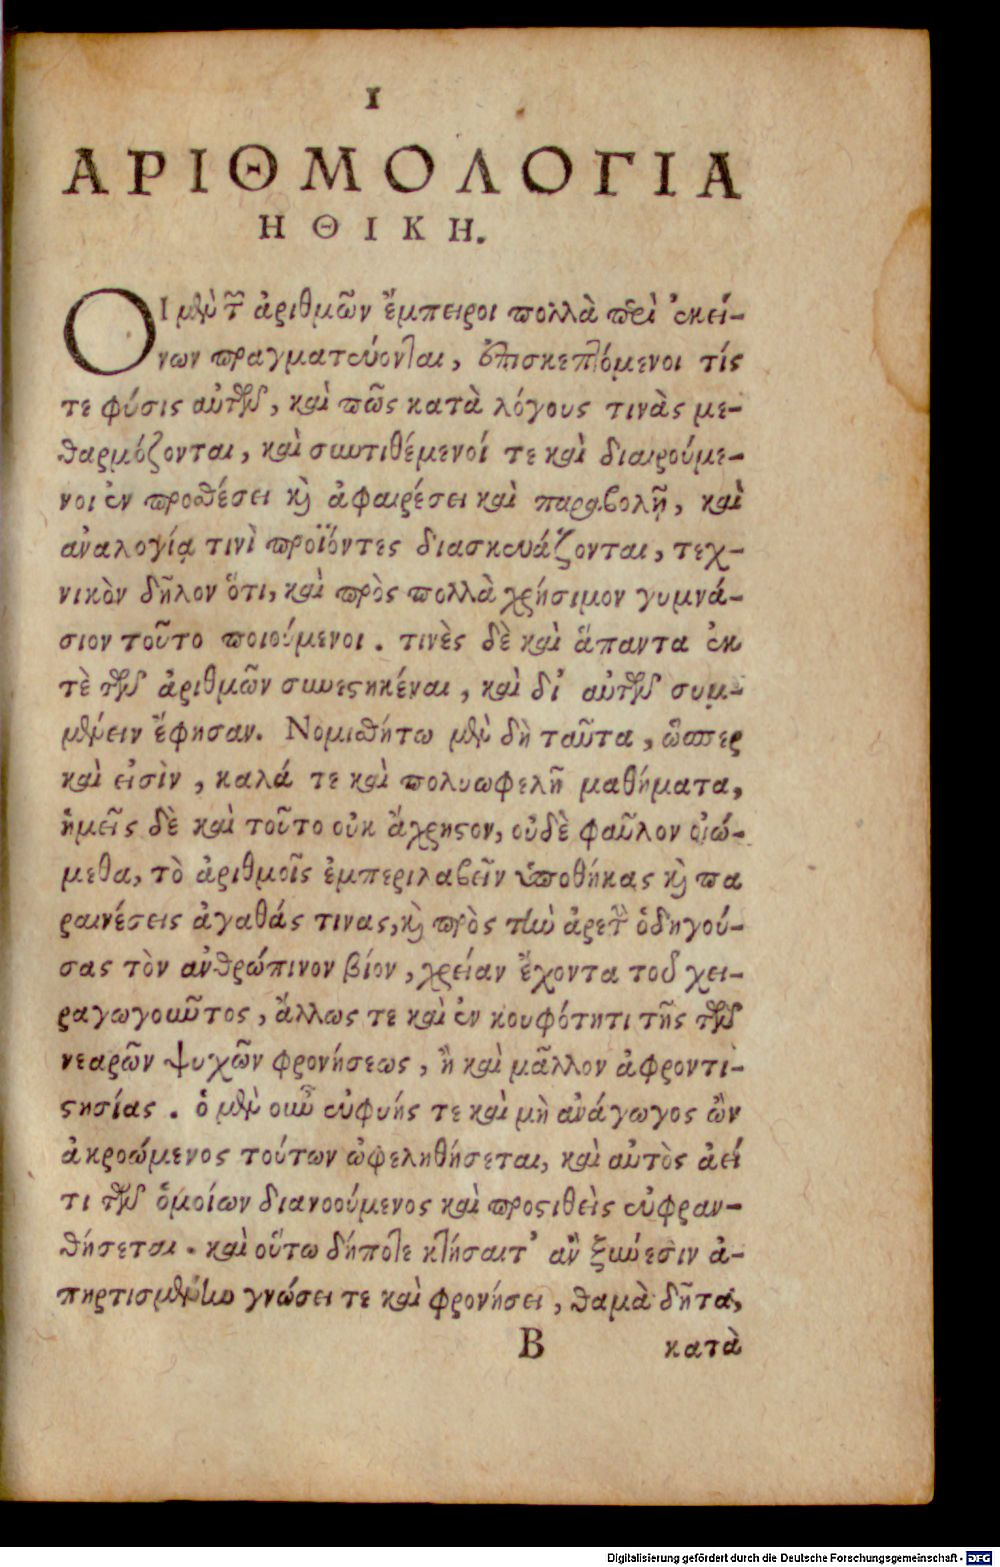 I
ΑΡΙΘΜΟΛΟΓΙΑ
ΗΘΙΚΗ.
ΟΙ μὲν τῶν ἀριθμῶν ἔμπειροι πολλὰ περὶ ἐκεί-
νων πραγματεύονται, ἐπισκεπτόμενοι τίς
τε φύσις αὐτῶν, καὶ πῶς κατὰ λόγους τινὰς με-
θαρμόζονται, καὶ συντιθέμενοί τε καὶ διαιρούμε-
νοι ἐν προσθέσει κὶ ἀφαιρέσει καὶ παραβολῇ, καὶ
ἀναλογίᾳ τινὶ προϊόντες διασκευάζονται, τεχ-
νικὸν δῆλον ὅτι, καὶ πρὸς πολλὰ χρήσιμον γυμνά-
σιον τοῦτο ποιούμενοι. τινὲς δὲ καὶ ἅπαντα ἐκ
τὲ τῶν ἀριθμῶν συνεστηκέναι, καὶ δι᾽ αὐτῶν συμ-
μένειν ἔφησαν. Νομισθήτω μὲν δὴ ταῦτα, ὥσπερ
καὶ εἰσὶν, καλά τε καὶ πολυωφελῆ μαθήματα,
ἡμεῖς δὲ καὶ τοῦτο οὐκ ἄχρηστον, οὐδὲ φαῦλον οἰώ-
μεθα, τὸ ἀριθμοῖς ἐμπεριλαβεῖν ὑποθήκας κὶ πα
ραινέσεις ἀγαθάς τινας, κὶ πρὸς τὴν ἀρετὴν ὁδηγού-
σας τὸν ἀνθρώπινον βίον, χρείαν ἔχοντα τοῦ χει-
ραγωγοῦντος, ἄλλως τε καὶ ἐν κουφότητι τῆς τῶν
νεαρῶν ψυχῶν φρονήσεως, ἢ καὶ μᾶλλον ἀφροντι-
στησίας. ὁ μὲν οὖν εὐφυής τε καὶ μὴ ἀνάγωγος ὢν
ἀκροώμενος τούτων ὠφεληθήσεται, καὶ αὐτὸς ἀεί
τι τῶν ὁμοίων διανοούμενος καὶ προστιθεὶς εὐφραν-
θήσεται. καὶ οὕτω δήποτε κτήσαιτ᾽ ἂν ξύνεσιν ἀ-
πηρτισμένην γνώσει τε καὶ φρονήσει, θαμὰ δῆτα,
B κατὰ
Digitalisierung gefördert durch die Deutsche Forschungsgemeinschaft - DFG